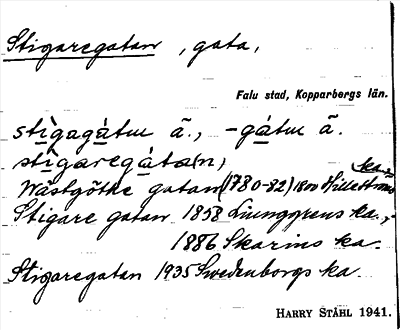 Stigaregatan, gata,
Falu stad, Kopparbergs län.
stìgagátur ä., -gátur ä.
stìgaregáta(n)
ka.
Wästgöthe gatan (1780-82) 1800 Hilleströms
Stigare gatan 1858 Ljunggrens ka.,
1886 Skarins ka.
Stigaregatan 1935 Swedenborgs ka.
HARRY STÅHL 1941.